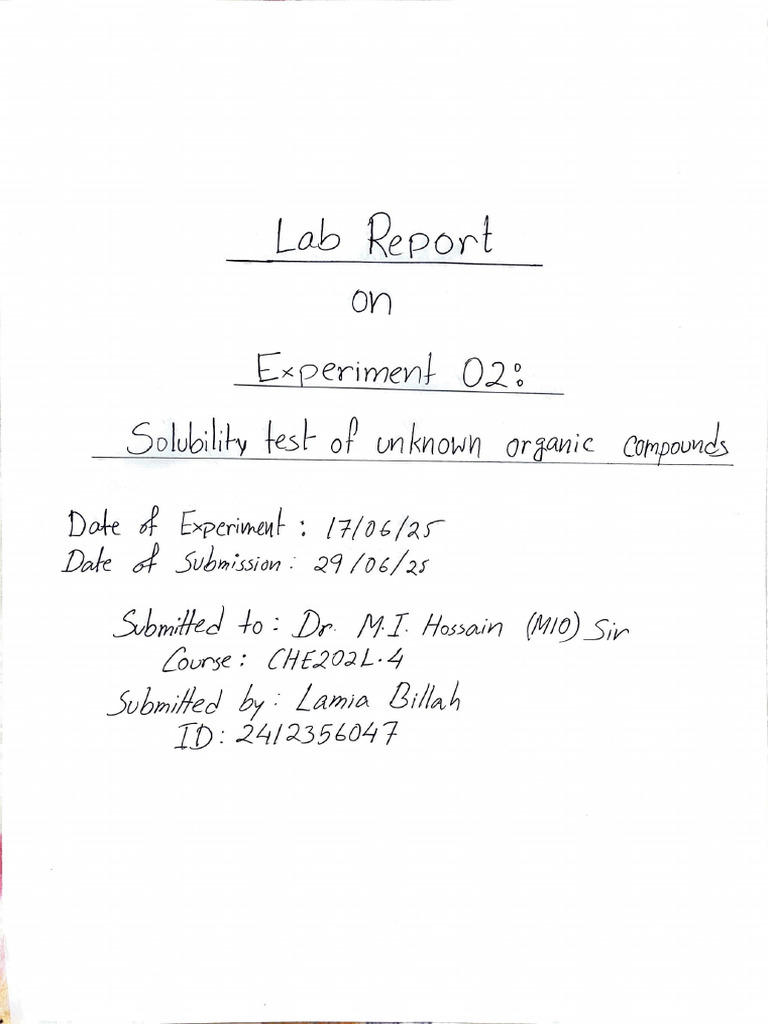 Lab Report
on
Experiment 02:
Solubility test of unknown organic compounds
Date of Experiment : 17/06/25
Date of Submission : 29/06/25
Submitted to : Dr. M.I. Hossain (MIO) Sir
Course : CHE202L.4
Submitted by : Lamia Billah
ID : 2412356047